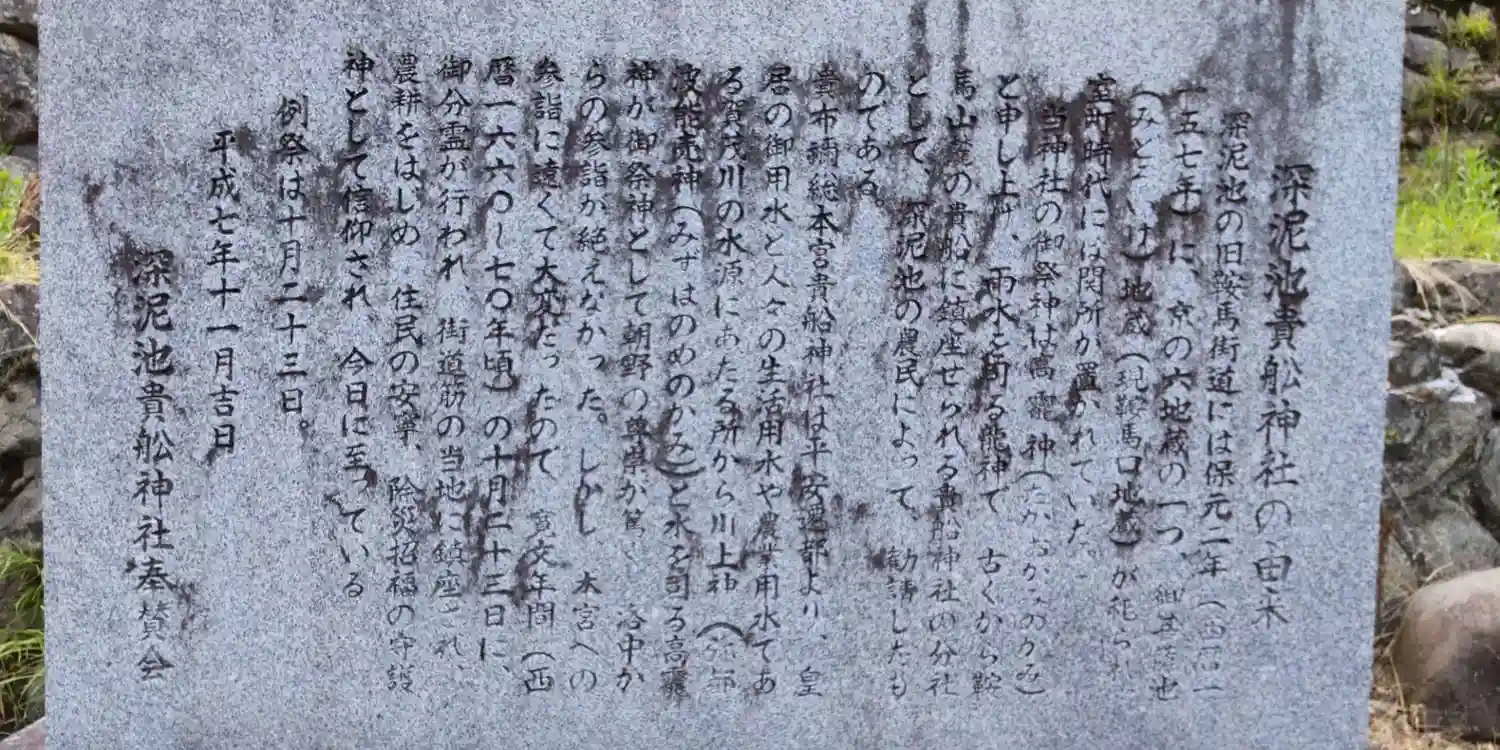 深泥池貴舩神社の由来
深泥池の旧鞍馬街道には保元二年（西暦一
一五七年）に、京の六地蔵の一つ、御菩薩池
（みどろいけ）地蔵（現鞍馬口地蔵）が祀られ
室町時代には関所が置かれていた。
当神社の御祭神は高龗神（たかおかみのかみ）
と申し上げ、雨水を司る龍神で 古くから鞍
馬山麓の貴船に鎮座せられる貴船神社の分社
として、深泥池の農民によって、勧請したも
のである。
貴布禰総本宮貴船神社は平安遷都より、皇
居の御用水と人々の生活用水や農業用水であ
る賀茂川の水源にあたる所から川上神（
波能売神（みずはのめのかみ）と水を司る高龗
神が御祭神として朝野の尊崇が篤く 洛中か
らの参詣が絶えなかった。しかし 本宮への
参詣に遠くて大変だったので 寛文年間（西
暦一六六〇～七〇年頃）の十月二十三日に、
御分霊が行われ、街道筋の当地に鎮座され、
農耕をはじめ、住民の安寧、除災招福の守護
神として信仰され、今日に至っている
例祭は十月二十三日。
平成七年十一月吉日
深泥池貴舩神社奉賛会